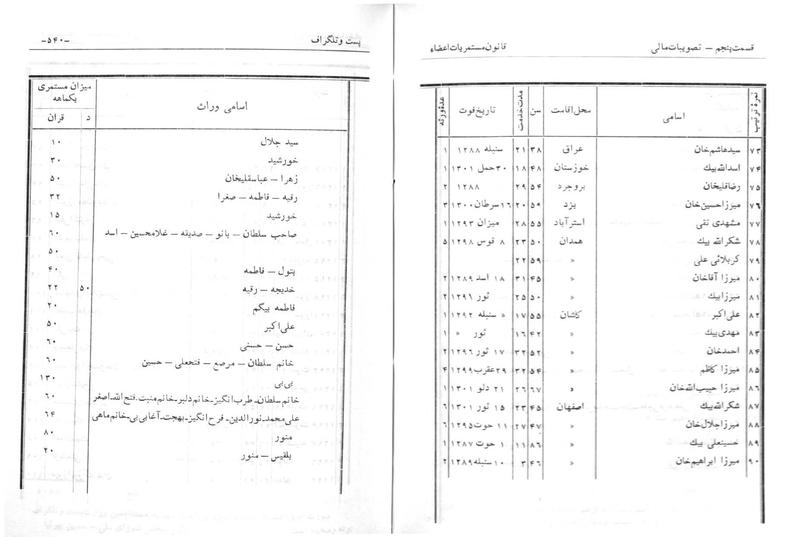 قسمت پنجم – تصویبات مالی قانون مستمریات اعضاء
نمرهٔ ترتیب اسامی محل اقامت سن مدت خدمت تاریخ فوت عدهٔ ورثه
۷۳ سیدهاشم خان عراق ۳۸ ۲۱ سنبله ۱۲۸۸ ۱
۷۴ اسدالله بیك خوزستان ۴۸ ۱۸ ۳۰ حمل ۱۳۰۱ ۱
۷۵ رضاقلیخان بروجرد ۵۴ ۲۹ ۱۲۸۸ ۲
۷۶ میرزا حسین خان یزد ۵۹ ۲۰ ۱۶ سرطان ۱۳۰۰ ۳
۷۷ مشهدی تقی استرآباد ۵۵ ۲۸ میزان ۱۲۹۳ ۱
۷۸ شکرالله بیك همدان ۵۰ ۲۳ ۸ قوس ۱۲۹۸ ۵
۷۹ کربلائی علی » ۵۹ ۲۲
۸۰ میرزا آقاخان » ۴۵ ۳۱ ۱۸ اسد ۱۲۸۹ ۲
۸۱ میرزا بیك » ۵۰ ۲۵ ثور ۱۲۹۶ ۲
۸۲ علی اکبر کاشان ۵۵ ۱۷ » سنبله ۱۲۹۲ ۱
۸۳ مهدی بیك » ۴۲ ۱۶ ثور » ۱
۸۴ احمدخان » ۵۲ ۳۲ ۱۷ ثور ۱۲۹۶ ۲
۸۵ میرزا کاظم » ۵۴ ۳۲ ۲۹ عقرب ۱۲۹۹ ۴
۸۶ میرزا حبیب الله خان » ۶۷ ۲۶ ۲۱ دلو ۱۳۰۱ ۱
۸۷ شکرالله بیك اصفهان ۴۵ ۲۳ ۱۵ ثور ۱۳۰۱ ۶
۸۸ میرزا جلال خان » ۴۷ ۲۷ ۱۱ حوت ۱۲۹۵ ۶
۸۹ حسینعلی بیك » ۸۶ ۱۱ ۱ حوت ۱۲۸۷ ۱
۹۰ میرزا ابراهیم خان » ۴۶ ۳ ۱۰ سنبله ۱۲۸۹ ۲
پست و تلگراف –۵۴۰–
اسامی وراث میزان مستمری یکماهه
د قران
سید جلال ۱۰
خورشید ۳۰
زهرا – عباسقلیخان ۵۰
رقیه – فاطمه – صغرا ۳۲
خورشید ۱۵
صاحب سلطان – بانو – صدیقه – غلامحسین – اسد ۶۰
۵۰
بتول – فاطمه ۴۰
خدیجه – رقیه ۵۰ ۲۲
فاطمه بیگم ۲۰
علی اکبر ۵۰
حسن – حسنی ۶۰
خانم سلطان – مرصع – فتحعلی – حسین ۶۰
بی بی ۱۳۰
خانم سلطان – طرب انگیز – خانم دلبر – خانم منیت – فتح الله – اصغر ۶۰
علی محمد – نورالدین – فرح انگیز – بهجت – آغابی بی – خانم ماهی ۶۴
منور ۸۰
بلقیس – منور ۲۰